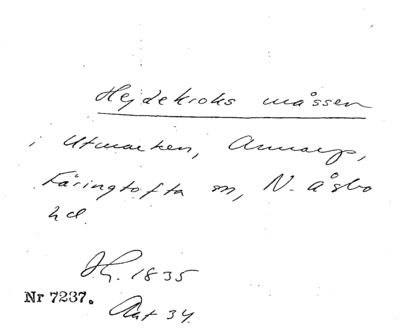 Hejdekroks måssen
i Utmarken, Annarp,
Färingtofta sn, N. Åsbo
hd.
H. 1835
Nr 7237. Akt 34.